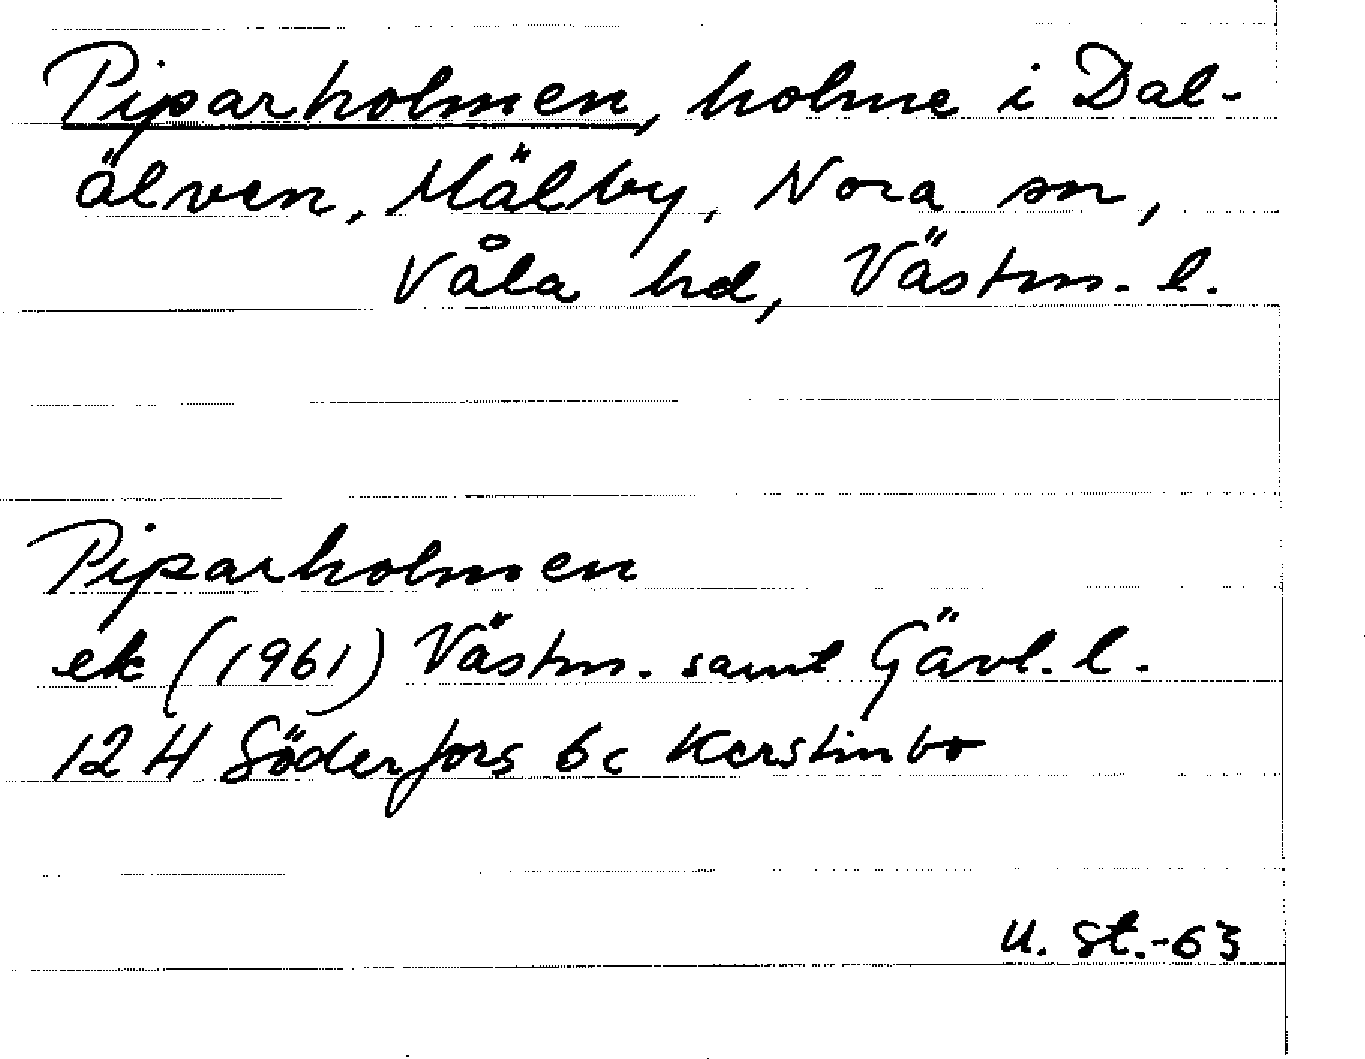 Piparholmen, holme i Dal-
älven, Mälby, Nora sn,
Våla hd, Västm. l.
Piparholmen
ek (1961) Västm. samt Gävl. l.
12 H Söderfors 6c Kerstinbo
U. St.-63